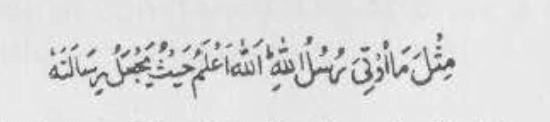 مِثْلَ مَا اُوْتِیَ رُسُلُ اللهِ ؕ اَللهُ اَعْلَمُ حَیْثُ یَجْعَلُ رِسَالَتَهٗ